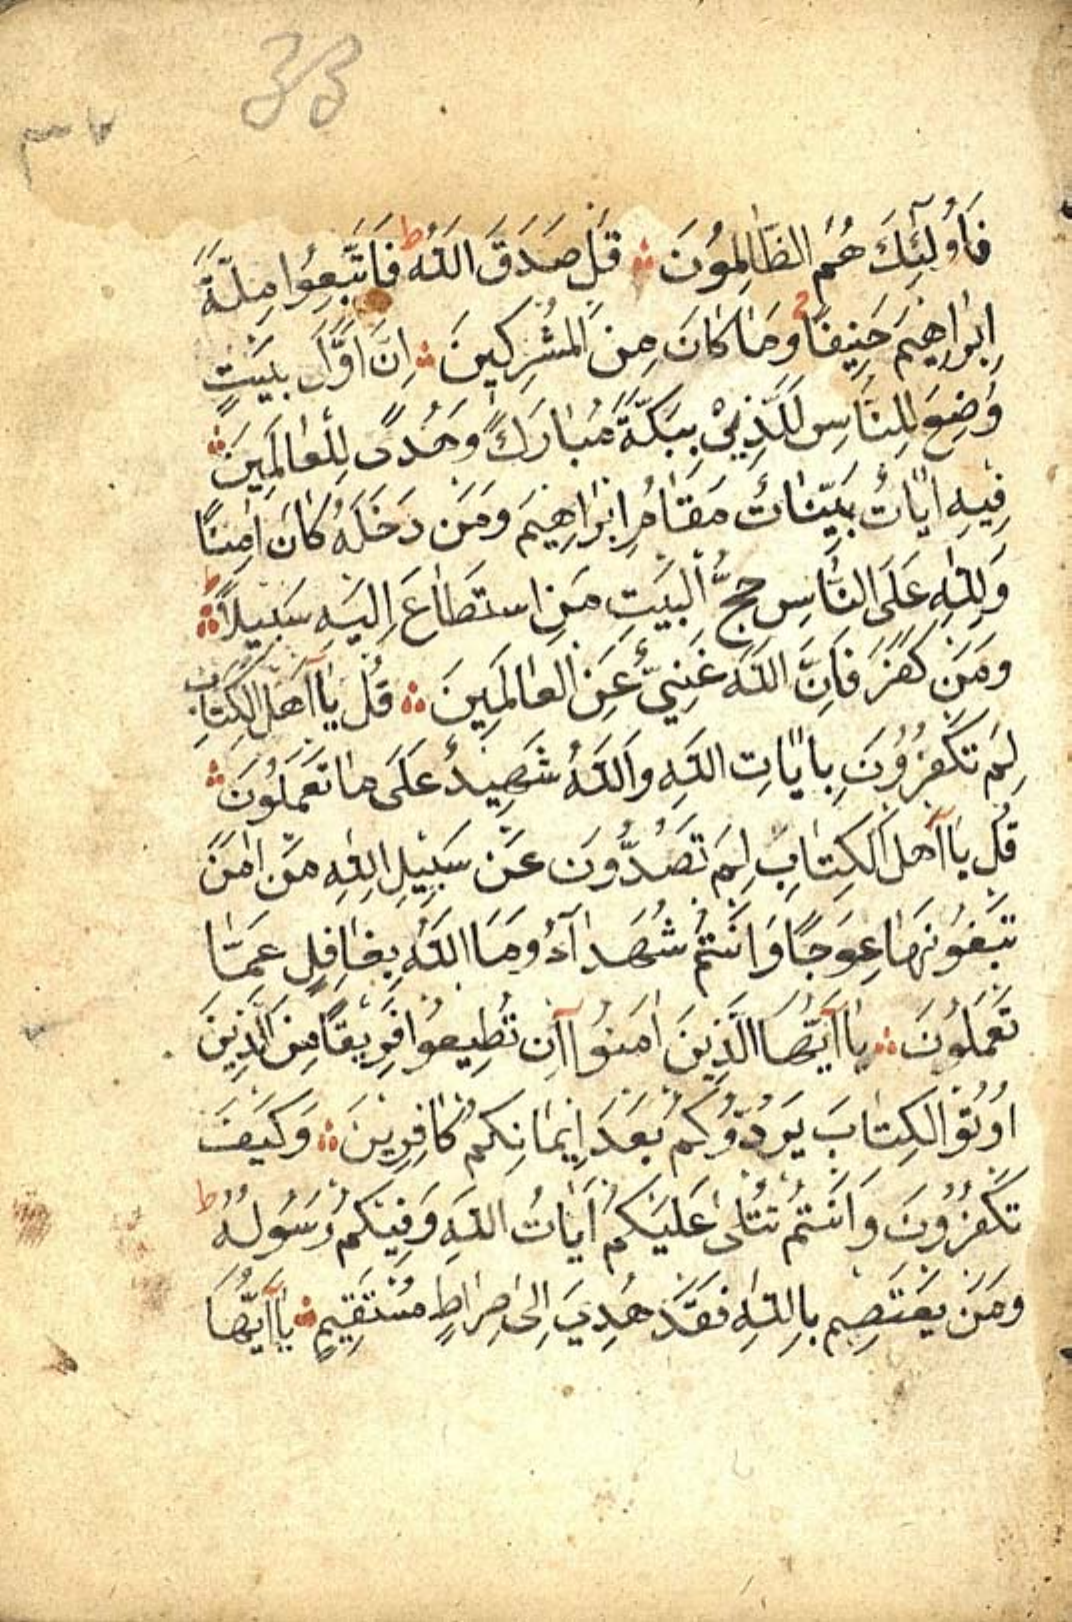 33
فَاُولٰٓئِكَ هُمُ الظَّالِمُونَ ؞ قُلْ صَدَقَ اللّٰهُ ط فَاتَّبِعُوا مِلَّةَ
اِبْرٰاهِيمَ حَنِيفًا وَمَا كَانَ مِنَ الْمُشْرِكِينَ ؞ اِنَّ اَوَّلَ بَيْتٍ
وُضِعَ لِلنَّاسِ لَلَّذِيْ بِبَكَّةَ مُبٰارَكًا وَهُدًى لِلْعٰالَمِينَ ؞
فِيهِ اٰيٰاتٌ بَيِّنٰاتٌ مَقٰامُ اِبْرٰاهِيمَ وَمَنْ دَخَلَهُ كٰانَ اٰمِنًا
وَلِلّٰهِ عَلَى النَّاسِ حِجُّ الْبَيْتِ مَنِ اسْتَطٰاعَ اِلَيْهِ سَبِيلًا ط ؞
وَمَنْ كَفَرَ فَاِنَّ اللّٰهَ غَنِيٌّ عَنِ الْعٰالَمِينَ ؞ قُلْ يٰٓا اَهْلَ الْكِتٰابِ
لِمَ تَكْفُرُوْنَ بِاٰيٰاتِ اللّٰهِ وَاللّٰهُ شَهِيدٌ عَلٰى مٰا تَعْمَلُوْنَ ؞
قُلْ يٰٓا اَهْلَ الْكِتٰابِ لِمَ تَصُدُّونَ عَنْ سَبِيْلِ اللّٰهِ مَنْ اٰمَنَ
تَبْغُوْنَهٰا عِوَجًا وَاَنْتُمْ شُهَدٰٓاءُ وَمَا اللّٰهُ بِغٰافِلٍ عَمَّا
تَعْمَلُوْنَ ؞ يٰٓا اَيُّهَا الَّذِينَ اٰمَنُوْٓا اِنْ تُطِيعُوْا فَرِيقًا مِنَ الَّذِينَ
اُوتُوْ الْكِتٰابَ يَرُدُّوْكُمْ بَعْدَ اِيمٰانِكُمْ كٰافِرِيْنَ ؞ وَكَيْفَ
تَكْفُرُوْنَ وَاَنْتُمْ تُتْلٰى عَلَيْكُمْ اٰيٰاتُ اللّٰهِ وَفِيْكُمْ رَسُوْلُهُ ط
وَمَنْ يَعْتَصِمْ بِاللّٰهِ فَقَدْ هُدِيَ اِلٰى صِرٰاطٍ مُسْتَقِيْمٍ ؞ يٰٓا اَيُّهَا